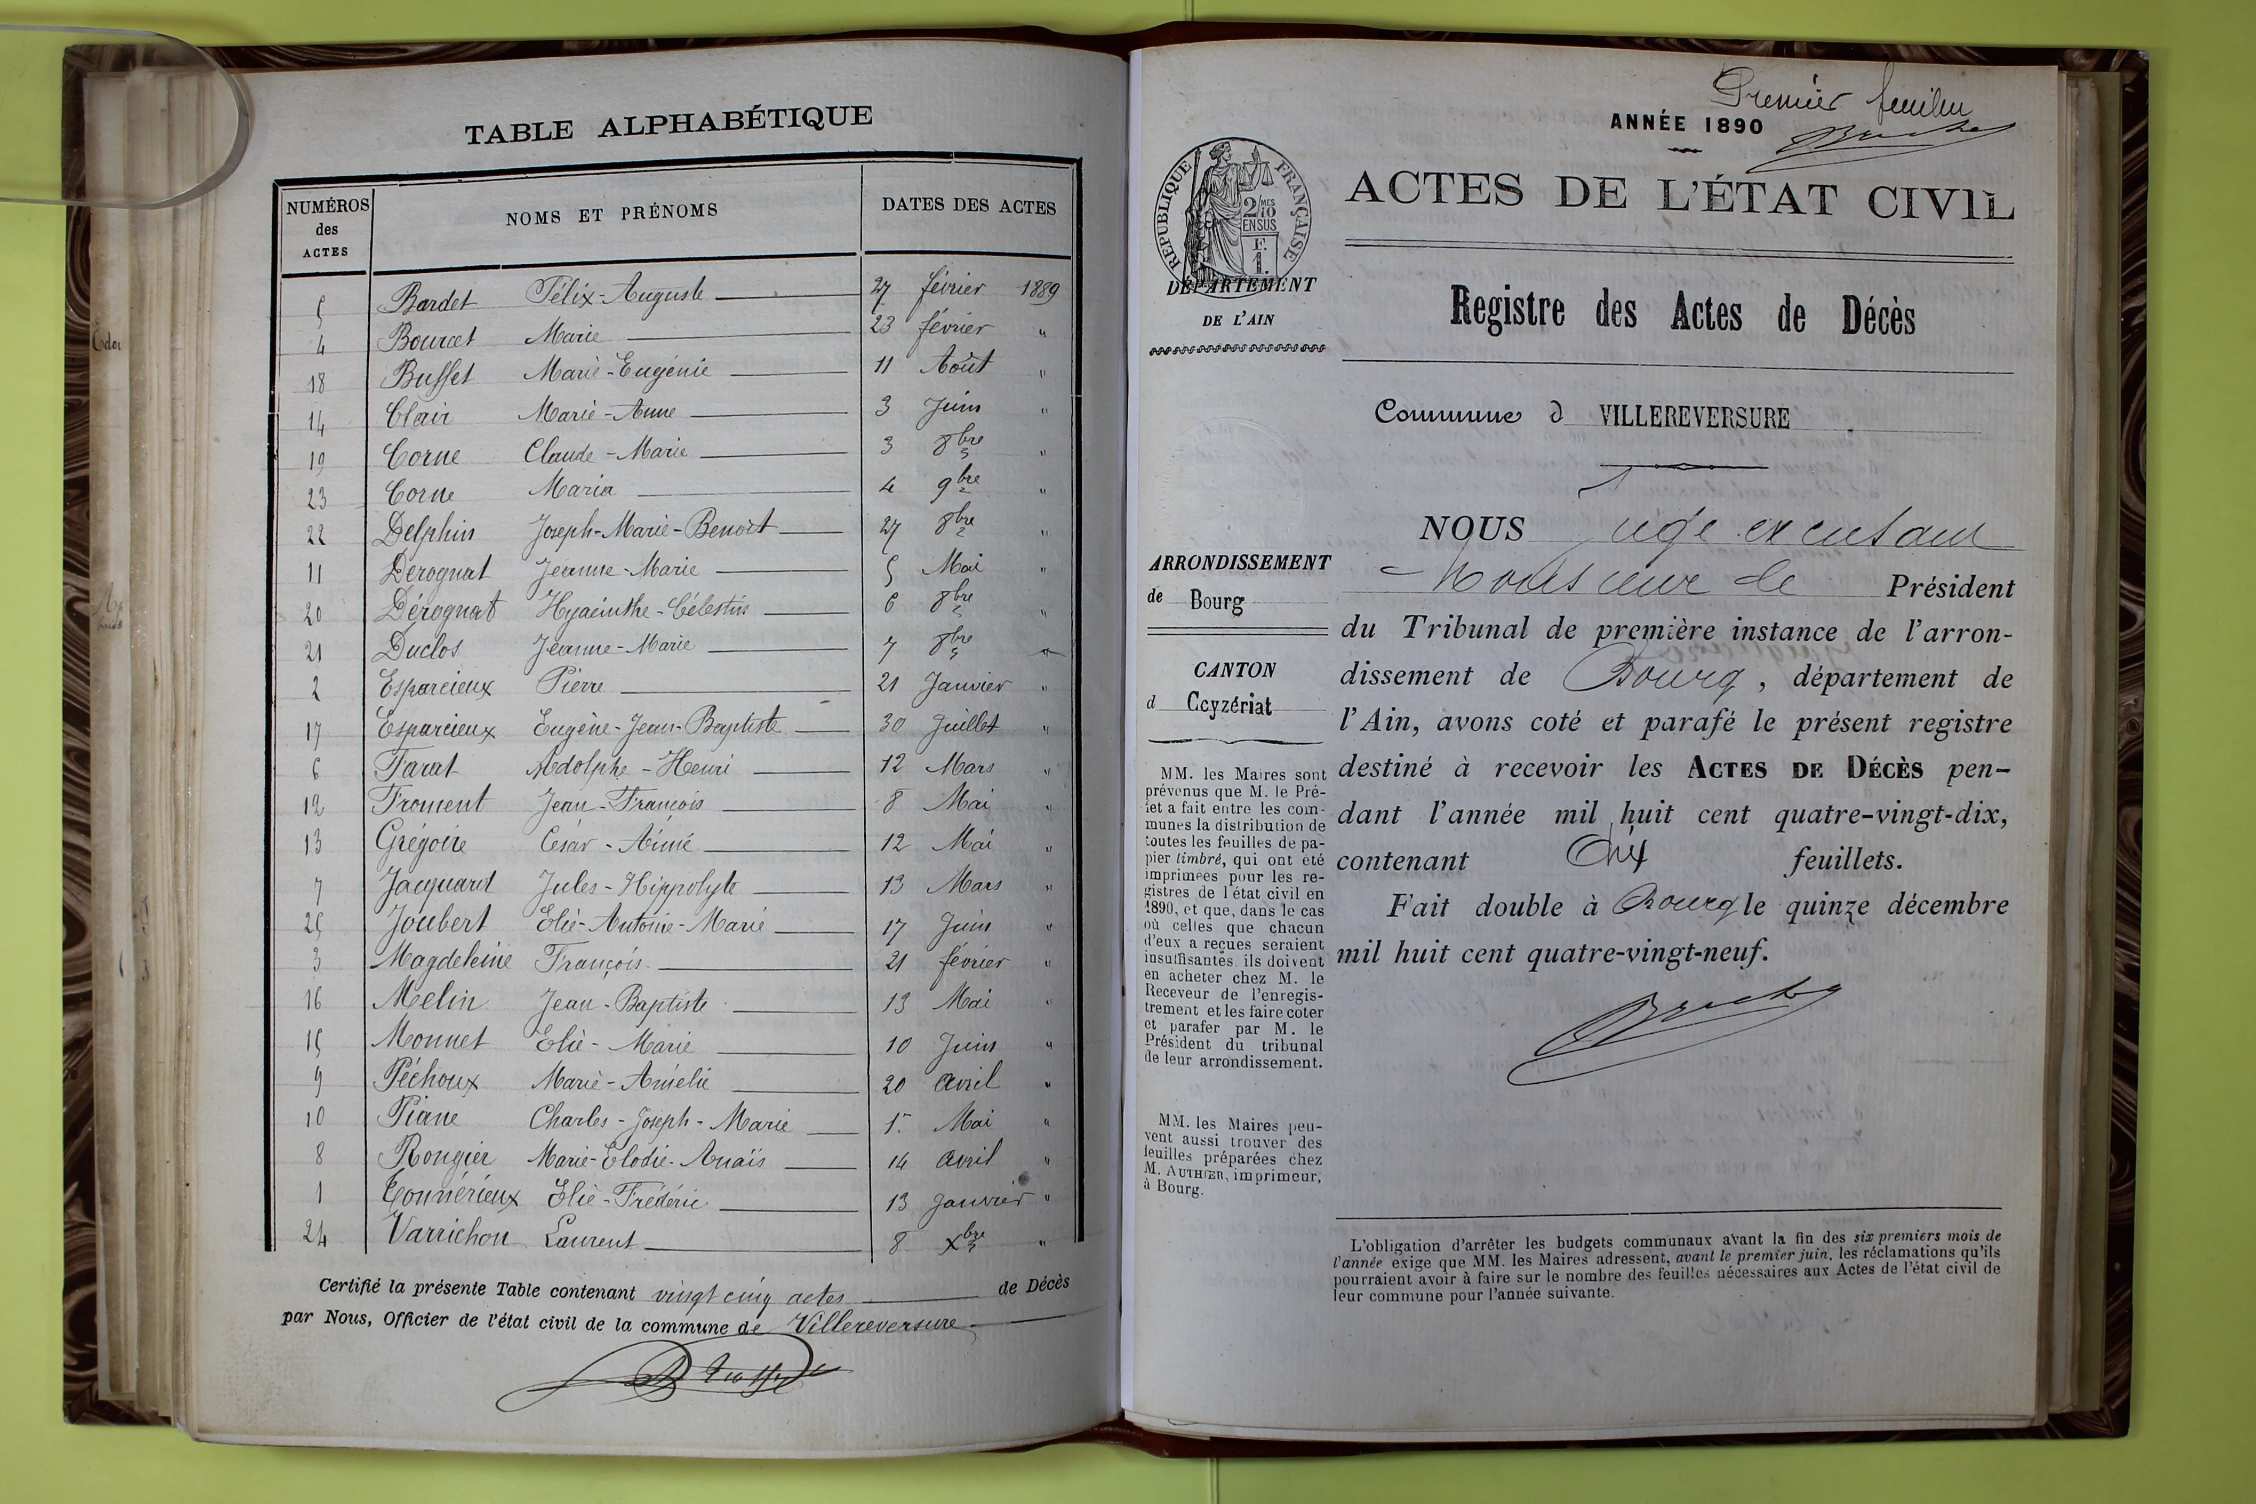 TABLE ALPHABÉTIQUE
NUMÉROS des ACTES NOMS ET PRÉNOMS DATES DES ACTES
5 Bardet Félix-Auguste 27 février 1889
4 Bourcet Marie 23 février "
18 Buffet Marie-Eugénie 11 Août "
14 Clair Marie-Anne 3 Juin "
19 Corne Claude-Marie 3 8bre "
23 Corne Maria 4 9bre "
22 Delphin Joseph-Marie-Benoît 27 8bre "
11 Dérognat Jeanne-Marie 5 Mai "
20 Dérognat Hyacinthe-Célestin 6 8bre "
21 Duclos Jeanne-Marie 7 8bre "
2 Esparcieux Pierre 21 Janvier "
17 Esparcieux Eugène-Jean-Baptiste 30 Juillet "
6 Farat Adolphe-Henri 12 Mars "
12 Froment Jean-François 8 Mai "
13 Grégoire César-Aimé 12 Mai "
7 Jacquand Jules-Hippolyte 13 Mars "
25 Joubert Elie-Antoine-Marie 17 Juin "
3 Magdeleine François 21 février "
16 Melin Jean-Baptiste 13 Mai "
15 Monnet Elie-Marie 10 Juin "
9 Péchoux Marie-Amélie 20 avril "
10 Piane Charles-Joseph-Marie 1er Mai "
8 Rougier Marie-Elodie-Anaïs 14 avril "
1 Tonnérieux Elie-Frédéric 13 Janvier "
24 Varrichon Laurent 8 xbre "
Certifié la présente Table contenant vingt cinq actes de Décès
par Nous, Officier de l'état civil de la commune de Villereversure
Premier feuillet
ANNÉE 1890
RÉPUBLIQUE FRANÇAISE
2/10 MES
EN SUS
F.
1.
ACTES DE L'ÉTAT CIVIL
DÉPARTEMENT
DE L'AIN
Registre des Actes de Décès
Commune d VILLEREVERSURE
ARRONDISSEMENT
de Bourg
CANTON
d Ceyzériat
MM. les Maires sont
prévenus que M. le Pré-
fet a fait entre les com-
munes la distribution de
toutes les feuilles de pa-
pier timbré, qui ont été
imprimées pour les re-
gistres de l'état civil en
1890, et que, dans le cas
où celles que chacun
d'eux a reçues seraient
insuffisantes, ils doivent
en acheter chez M. le
Receveur de l'enregis-
trement et les faire coter
et parafer par M. le
Président du tribunal
de leur arrondissement.
MM. les Maires peu-
vent aussi trouver des
feuilles préparées chez
M. AUTHIER, imprimeur,
à Bourg.
NOUS Juge excusant
Monsieur le Président
du Tribunal de première instance de l'arron-
dissement de Bourg, département de
l'Ain, avons coté et parafé le présent registre
destiné à recevoir les ACTES DE DÉCÈS pen-
dant l'année mil huit cent quatre-vingt-dix,
contenant feuillets.
Fait double à Bourg le quinze décembre
mil huit cent quatre-vingt-neuf.
L'obligation d'arrêter les budgets communaux avant la fin des six premiers mois de
l'année exige que MM. les Maires adressent, avant le premier juin, les réclamations qu'ils
pourraient avoir à faire sur le nombre des feuilles nécessaires aux Actes de l'état civil de
leur commune pour l'année suivante.